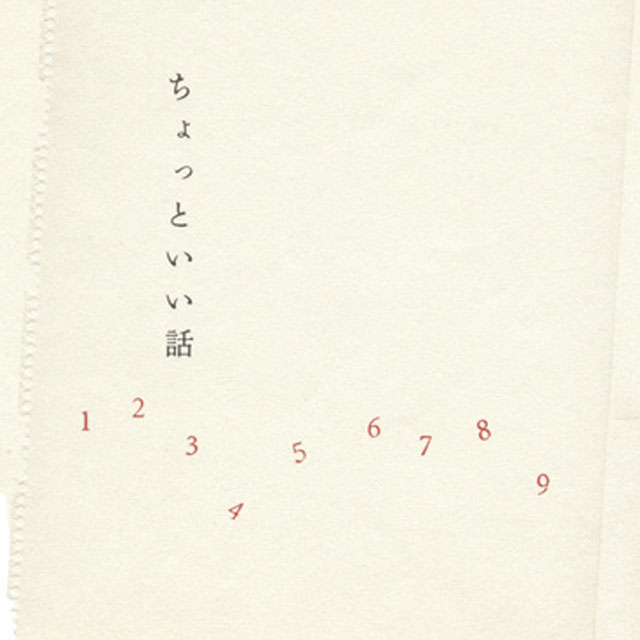 ちょっといい話
1 2 3 4 5 6 7 8 9